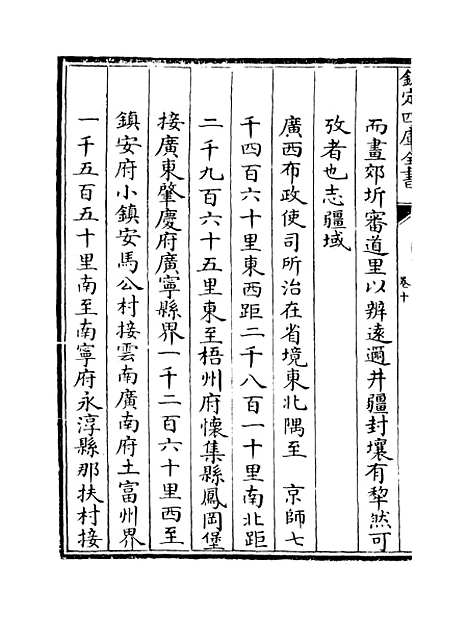 欽定四庫全書
卷十
而畫郊圻審道里以辨遠邇井疆封壤有犂然可
攷者也志疆域
廣西布政使司所治在省境東北隅至　京師七
千四百六十里東西距二千八百一十里南北距
二千九百六十五里東至梧州府懷集縣鳳岡堡
接廣東肇慶府廣寧縣界一千二百六十里西至
鎮安府小鎮安馬公村接雲南廣南府土富州界
一千五百五十里南至南寧府永淳縣那扶村接